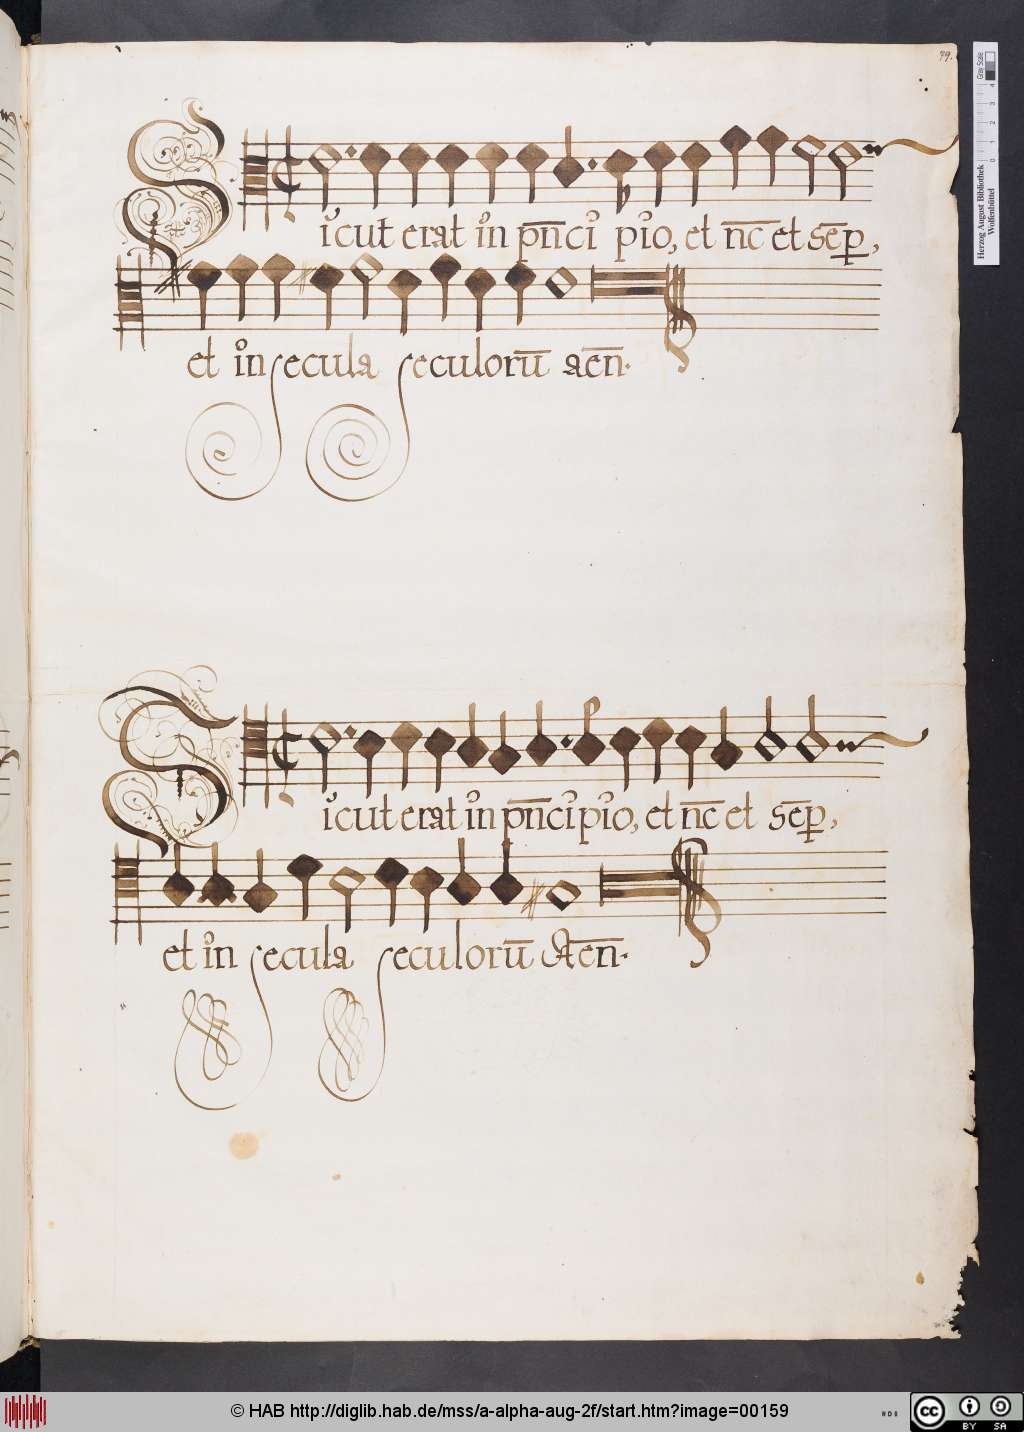 79.
Sicut erat in pn̄ci pio, et nc̄ et sēp,
et in secula seculorū aēn.
Sicut erat in pn̄cipio, et nc̄ et sēp,
et in secula seculorū Aēn.
Herzog August Bibliothek
Wolfenbüttel
0 1 2 3 4
Gray Scale
© HAB http://diglib.hab.de/mss/a-alpha-aug-2f/start.htm?image=00159
cc BY SA